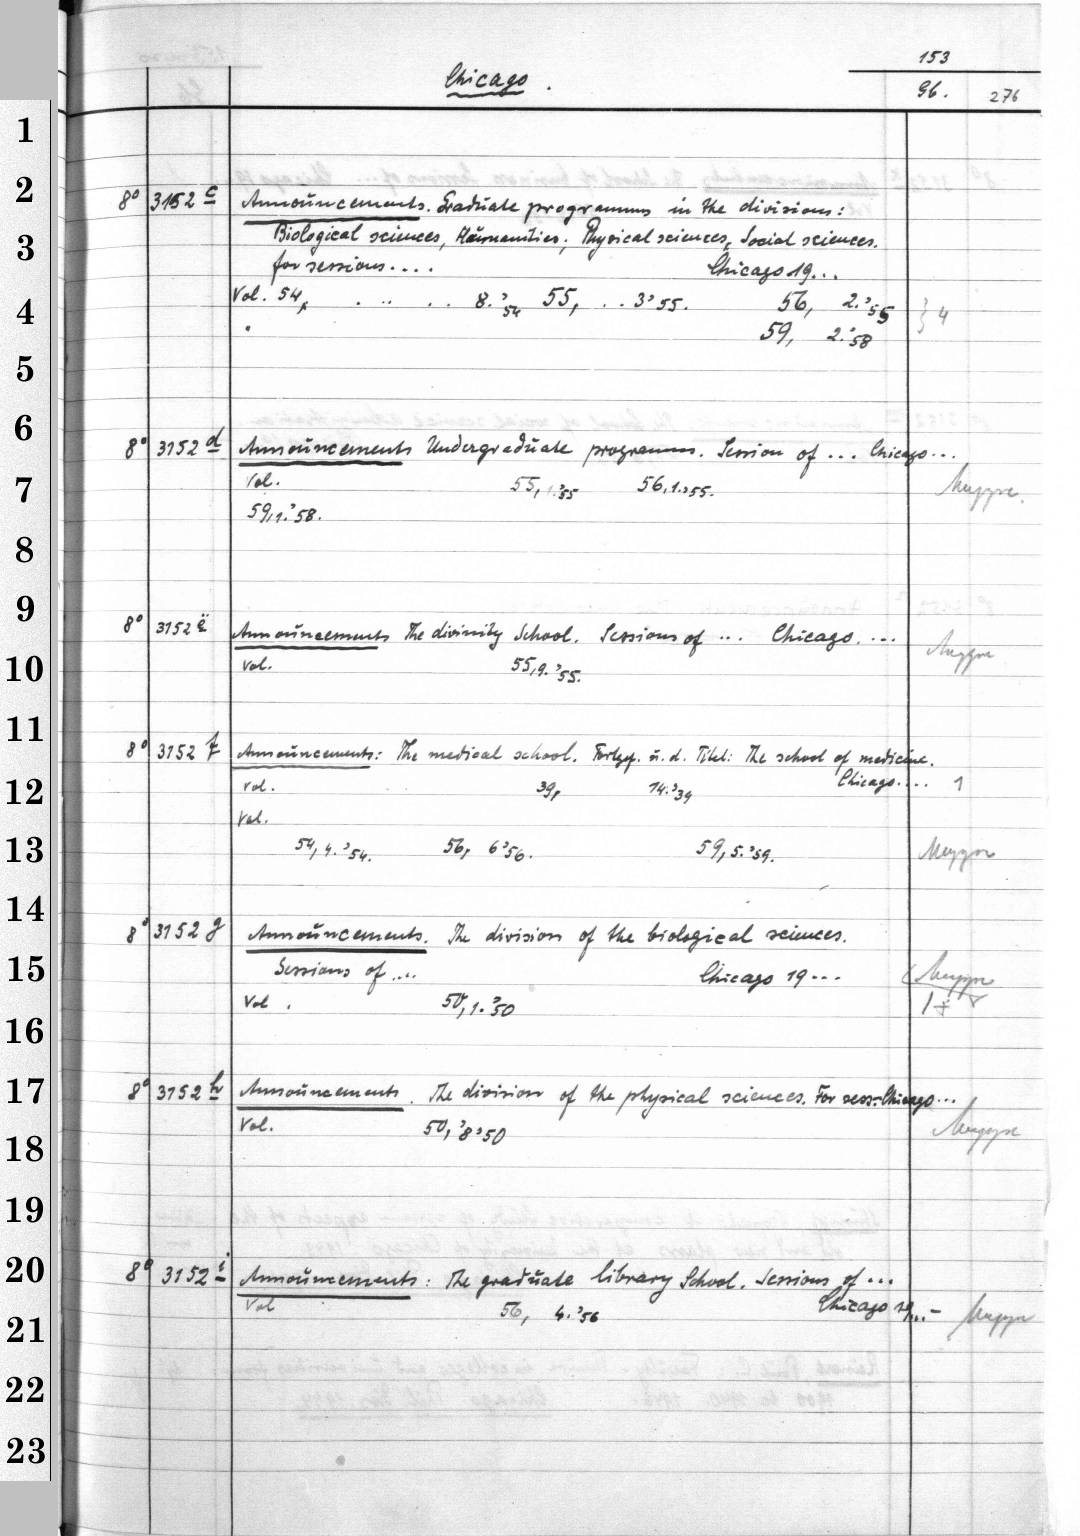 153
Chicago.
96. 276
1
2
8° 3152 c Announcements. Graduate programms in the divisions:
3
Biological sciences, Humanities, Physical sciences, Social sciences.
for sessions.... Chicago 19...
4
Vol. 54, . .. .. 8.'54 55, .. 3'55. 56, 2.'55 } 4
59, 2.'58
5
6
8° 3152 d Announcements Undergraduate programms. Session of ... Chicago ...
7
Vol. 55, 1.'55 56,1.'55. Mappe.
59,1.'58.
8
9
8° 3152 e Announcements The divinity School. Sessions of ... Chicago. ...
10
Vol. 55,9.'55. Mappe
11
8° 3152 f Announcements: The medical school. Fortges. u. d. Titel: The school of medicine.
12
Vol. 39, 14.'39 Chicago.... 1
Vol.
13
54,4.'54. 56, 6'56. 59,5.'59. Mappe
14
8° 3152 g Announcements. The division of the biological sciences.
15
Sessions of ... Chicago 19... Mappe
Vol. 50,1.'50
16
17
8° 3152 h Announcements. The division of the physical sciences. For sess: Chicago...
18
Vol. 50,'8'50 Mappe
19
20
8° 3152 i Announcements: The graduate library School. Sessions of ...
21
Vol 56, 4.'56 Chicago 19...- Mappe
22
23